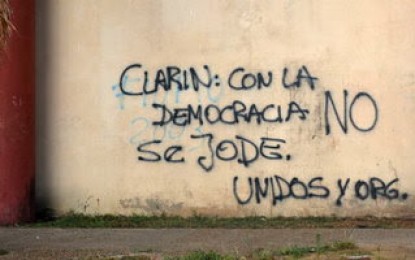 CLARIN: CON LA
DEMOCRACIA NO
SE JODE.
UNIDOS Y ORG.